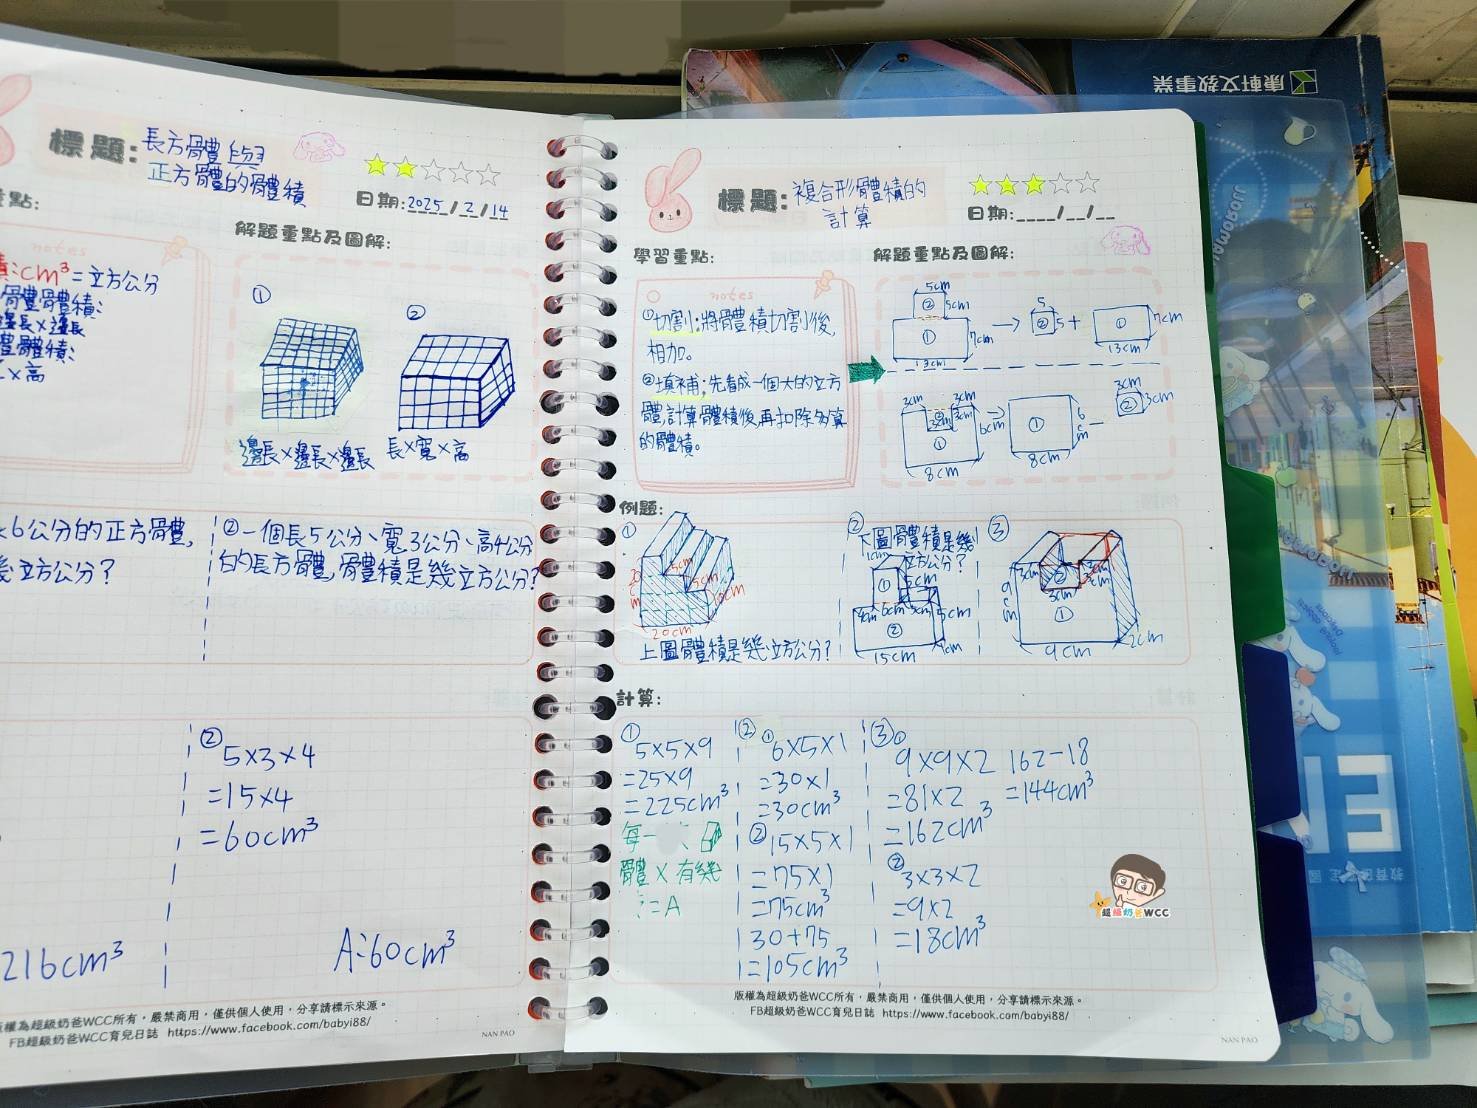 標題:長方體與
正方體的體積
日期:2025/2/14
重點:
解題重點及圖解:
notes
cm³=立方公分
體體積:
邊長×邊長
體體積:
×高
①
②
邊長×邊長×邊長
長×寬×高
6公分的正方體,
立方公分?
②一個長5公分、寬3公分、高4公分
的長方體,體積是幾立方公分?
②
5×3×4
=15×4
=60cm³
216cm³
A:60cm³
權為超級奶爸WCC所有,嚴禁商用,僅供個人使用,分享請標示來源。
FB超級奶爸WCC育兒日誌 https://www.facebook.com/babyi88/
NAN PAO
標題:複合形體積的
計算
日期:____/__/__
學習重點:
解題重點及圖解:
notes
①切割:將體積切割後,
相加。
②填補:先看成一個大的立方
體,計算體積後,再扣除多算
的體積。
5cm
② 5cm
① 7cm
13cm
5
② 5 +
① 7cm
13cm
3cm
3cm
3cm
3cm
①
6cm
8cm
①
6cm
8cm
3cm
② 3cm
例題:
①
5cm
5cm
20cm
上圖體積是幾立方公分?
②
下圖體積是幾
立方公分?
1cm
①
5cm
6cm
5cm
②
15cm
1cm
③
3cm
②
3cm
9cm
①
9cm
2cm
計算:
①
5×5×9
=25×9
=225cm³
每一
體×有幾
=A
②
①6×5×1
=30×1
=30cm³
②15×5×1
=75×1
=75cm³
30+75
=105cm³
③
①
9×9×2
=81×2
=162cm³
②
3×3×2
=9×2
=18cm³
162-18
=144cm³
超級奶爸WCC
版權為超級奶爸WCC所有,嚴禁商用,僅供個人使用,分享請標示來源。
FB超級奶爸WCC育兒日誌 https://www.facebook.com/babyi88/
NAN PAO
康軒文教事業